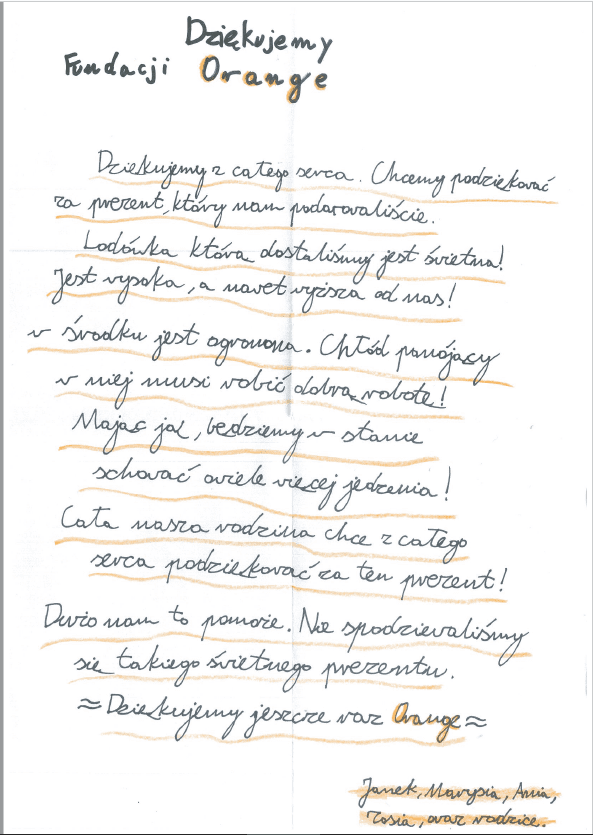 Dziękujemy
Fundacji Orange
Dziękujemy z całego serca. Chcemy podziękować
za prezent, który nam podarovaliście.
Lodówka która dostaliśmy jest świetna!
Jest vysoka, a navet vyższa od nas!
w środku jest ogromna. Chłód panójący
w niej musi robić dobrą robotę!
Mając ją, będziemy w stanie
schować oviele vięcej jedzenia!
Cała nasza rodzina chce z całego
serca podziękować za ten prezent!
Dużo nam to pomoże. Nie spodzievaliśmy
się takiego świetnego prezentu.
≈ Dziękujemy jeszcze raz Orange ≈
Janek, Marysia, Ania,
Zosia, oraz rodzice.